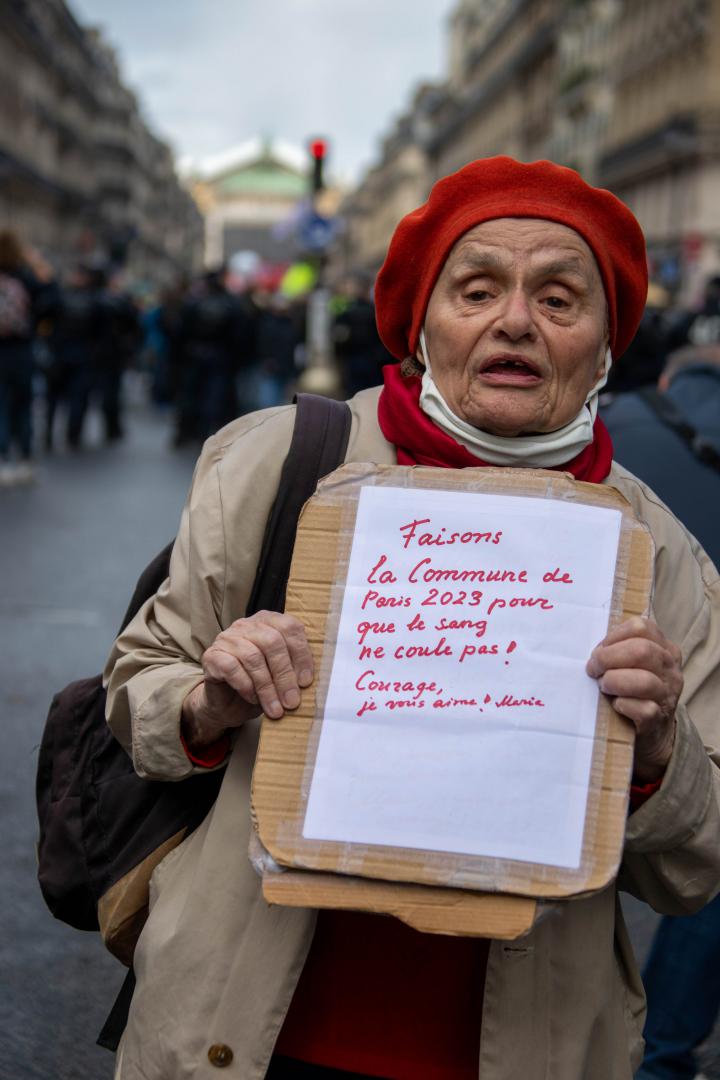 Faisons
la Commune de
Paris 2023 pour
que le sang
ne coule pas!
Courage,
je vous aime! Maria